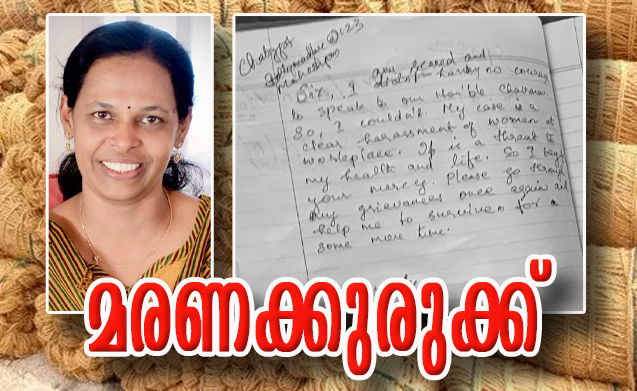 Sir, I am scared and
didn't having no courage
to speak to our Hon'ble Chairman
So, I couldn't. My case is a
clear harassment of women at
workplace. It is a threat to
my health and life. So I beg
your mercy. Please go through
my grievances once again and
help me to survive for
some more time.
മരണക്കുരുക്ക്